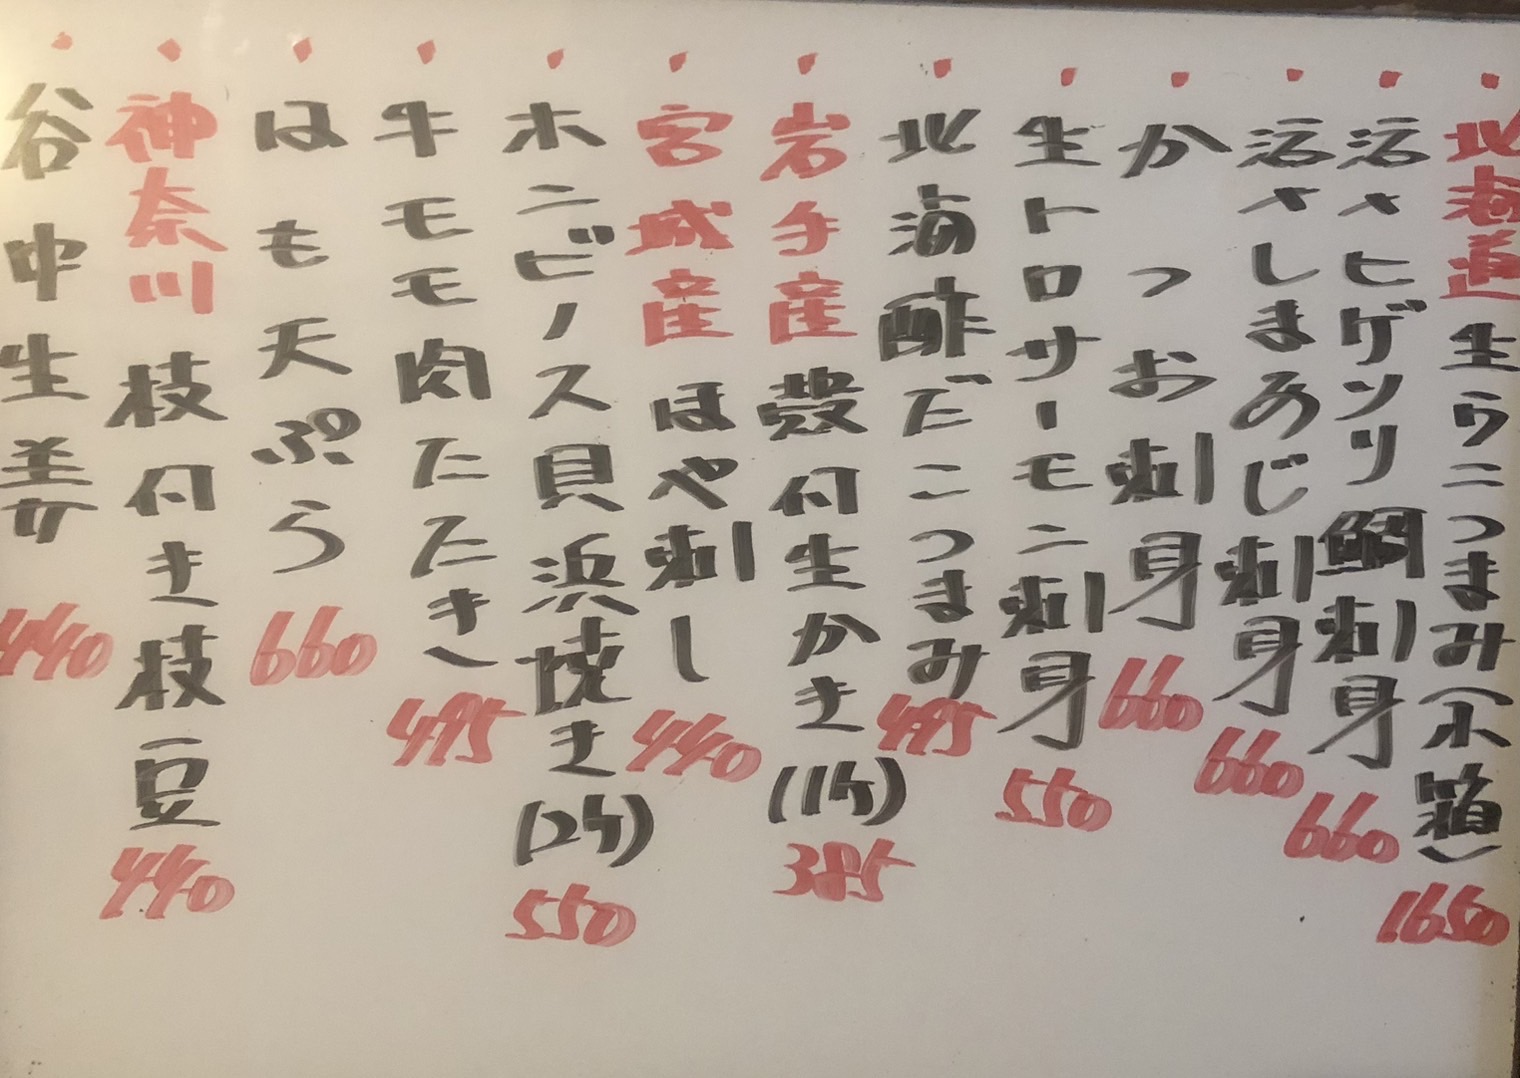 ・北海道生ウニつまみ(小箱) 1650
・活〆ヒゲソリ鯛刺身 660
・活〆しまあじ刺身 660
・かつお刺身 660
・生トロサーモン刺身 550
・北海酢だこつまみ 495
・岩手産殻付生かき(1ケ) 385
・宮城産ほや刺し 440
・ホンビノス貝浜焼き(2ケ) 550
・牛モモ肉たたき 495
・はも天ぷら 660
・神奈川枝付き枝豆 440
・谷中生姜 440